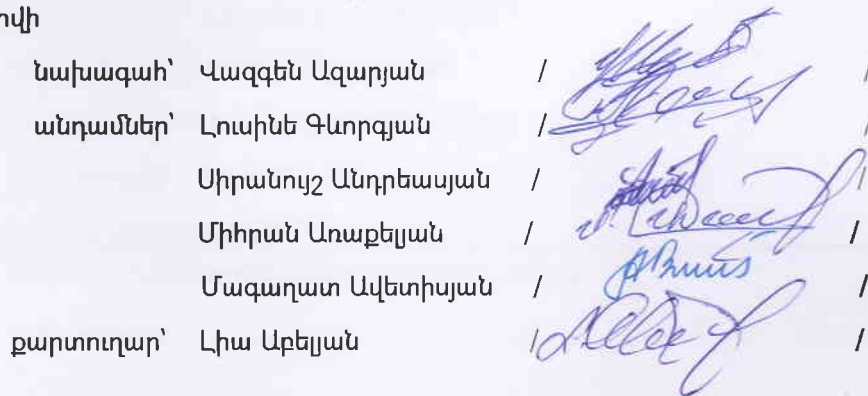 նախագահ՝ Վազգեն Ազարյան / /
անդամներ՝ Լուսինե Գևորգյան / /
Սիրանույշ Անդրեասյան / /
Միհրան Առաքելյան / /
Մագաղատ Ավետիսյան / /
քարտուղար՝ Լիա Աբելյան / /